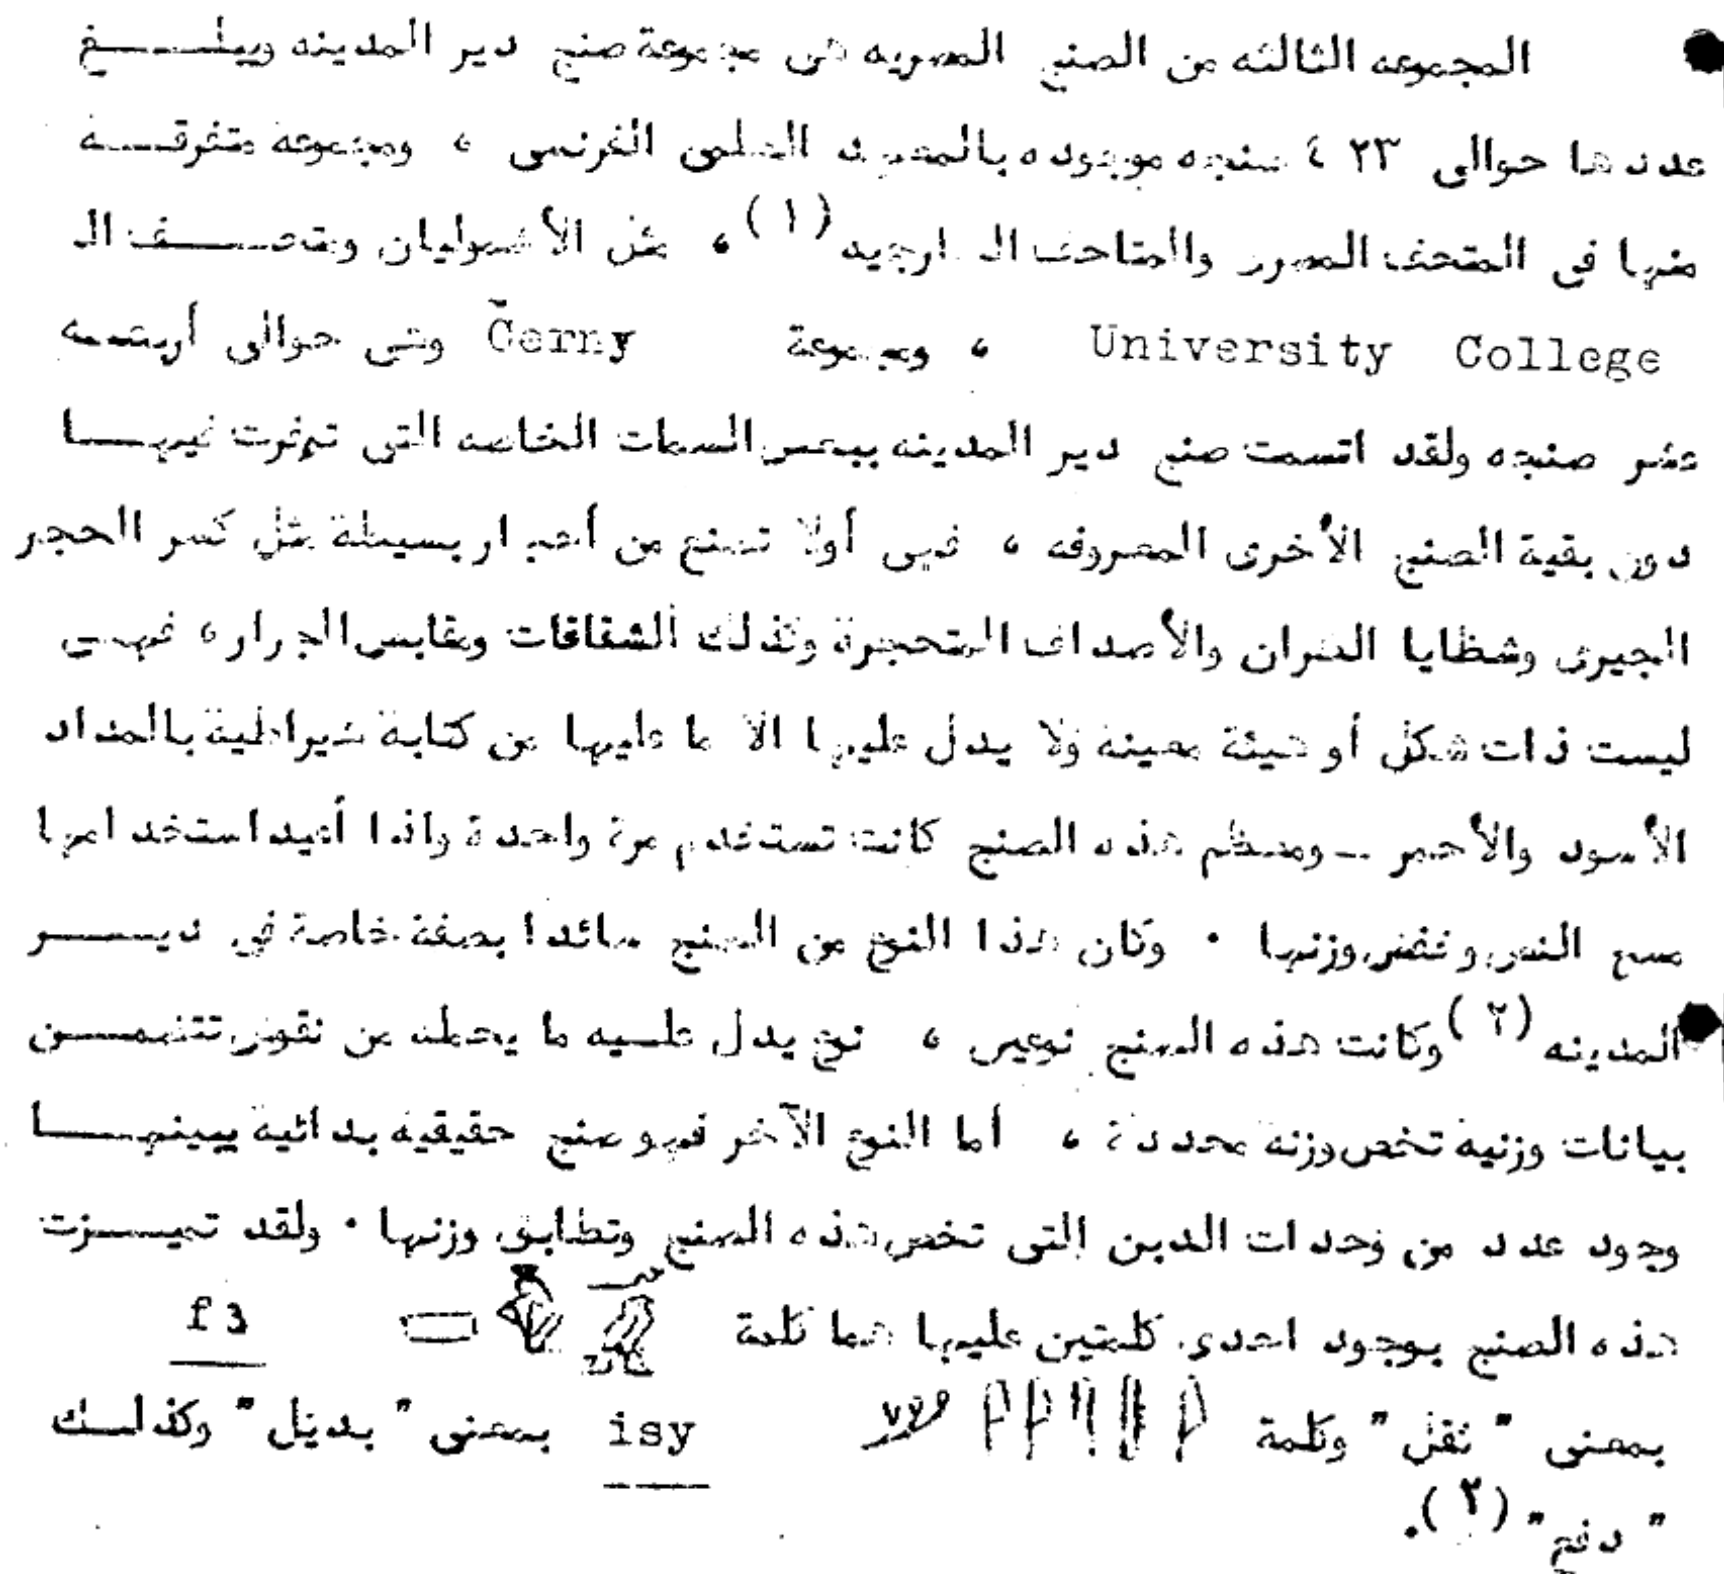 المجموعه الثالثه من الصنج المصريه هى مجموعة صنج دير المدينه ويبلـــغ
عددها حوالى ٤٢٣ صنجه موجوده بالمعهد العلمى الفرنسى ، ومجموعه متفرقــه
منها فى المتحف المصرى والمتاحف الخارجيه (١) ، مثل الأشموليان ومتحــف الـ
University College ، ومجموعة Černy وهى حوالى أربعـه
عشر صنجه ولقد اتسمت صنج دير المدينه ببعض السمات الخاصه التى توفرت فيهــا
دون بقية الصنج الأخرى المعروفه ، فهى أولا تصنع من أحجار بسيطة مثل كسر الحجر
الجيرى وشظايا الصوان والأصداف المتحجرة وكذلك الشقافات ومقابض الجرار ، فهـى
ليست ذات شكل أو هيئة معينه ولا يدل عليها الا ما عليها من كتابة هيراطية بالمداد
الأسود والأحمر ــ ومعظم هذه الصنج كانت تستخدم مرة واحدة واذا أعيد استخدامها
مسح النص وخفض وزنها . وكان هذا النوع من الصنج سائدا بصفة خاصة فى ديــر
المدينه (٢) وكانت هذه الصنج نوعين ، نوع يدل علـيه ما يحمله من نقوش تتضمــن
بيانات وزنيه تخص وزنه محددة ، أما النوع الآخر فهو صنج حقيقيه بدائية يبينهــا
وجود عدد من وحدات الدبن التى تخص هذه الصنج وتطابق وزنها . ولقد تميــزت
هذه الصنج بوجود احدى كلمتين عليها هما كلمة f3
بمعنى " ثقل " وكلمة isy بمعنى " بديل " وكذلـك
" دفع " (٢) .